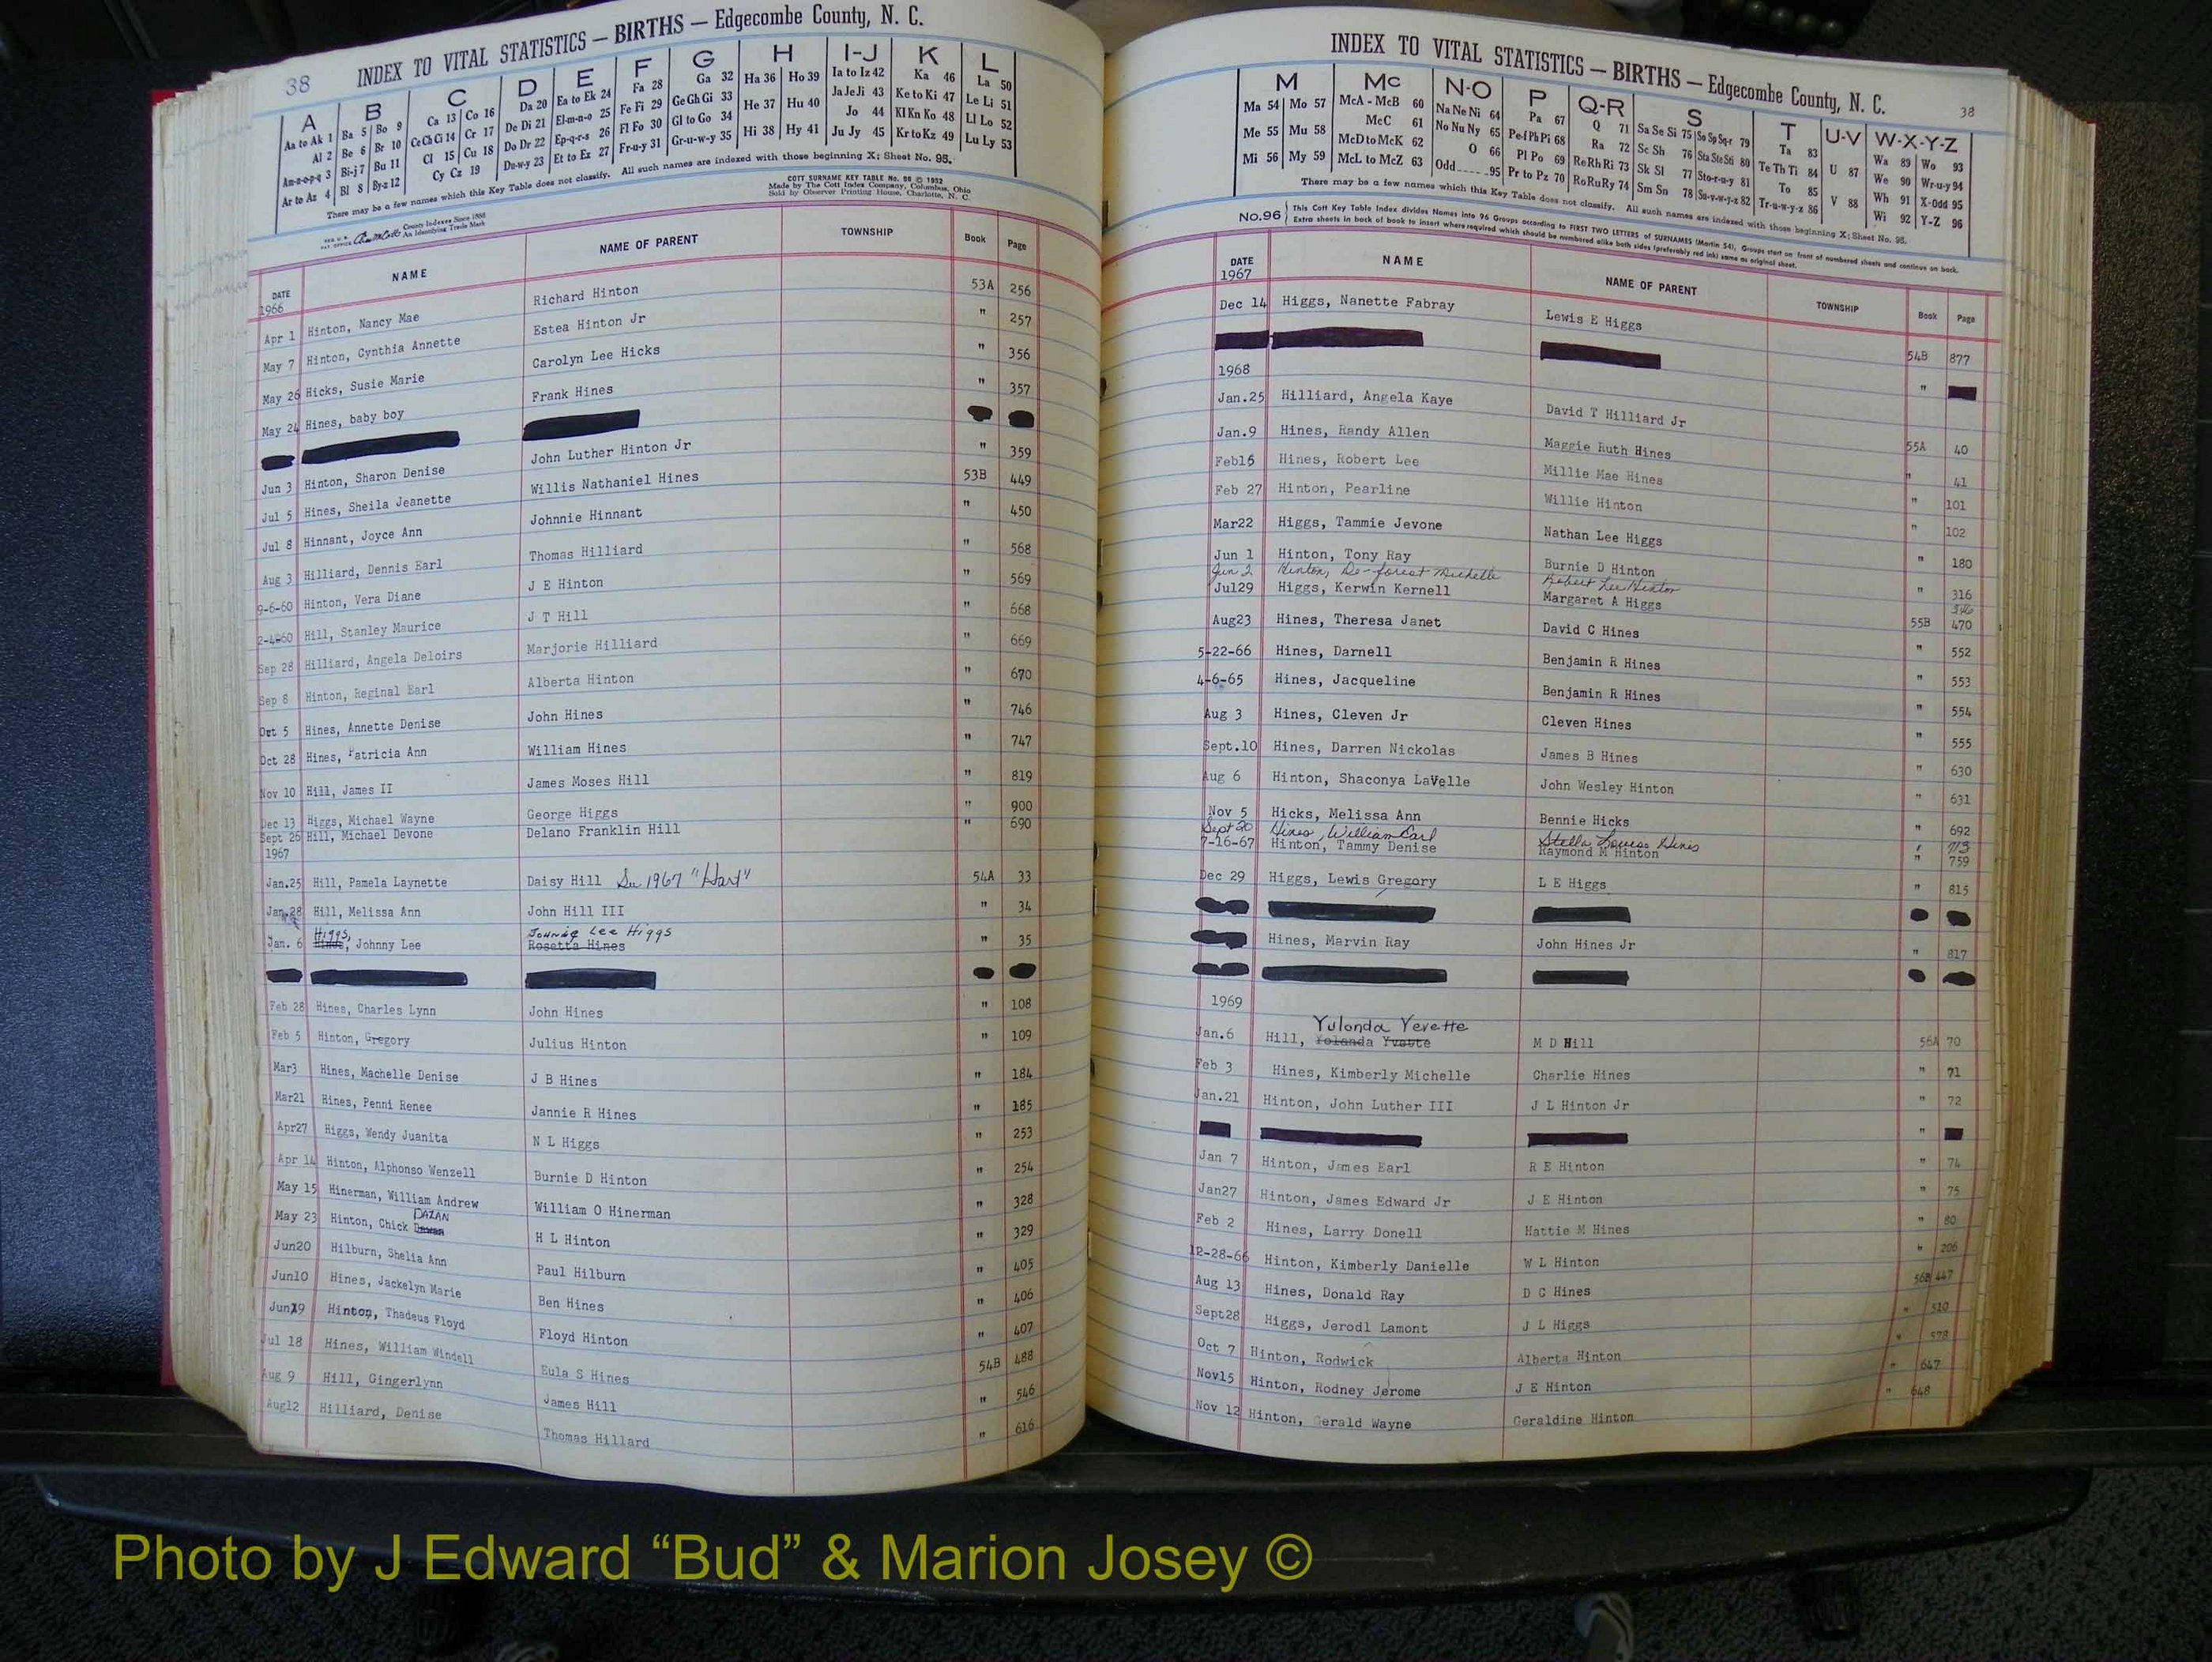 38 INDEX TO VITAL STATISTICS — BIRTHS — Edgecombe County, N. C.
A B C D E F G H I-J K L
Aa to Ak 1 Ba 5 Bo 9 Ca 13 Co 16 Da 20 Ea to Ek 24 Fa 28 Ga 32 Ha 36 Ho 39 Ia to Iz 42 Ka 46 La 50
Al 2 Be 6 Br 10 Ce Ch Ci 14 Cr 17 De Di 21 El-m-n-o 25 Fe Fi 29 Ge Gh Gi 33 He 37 Hu 40 Ja Je Ji 43 Ke to Ki 47 Le Li 51
Am-n-o-p-q 3 Bi-j 7 Bu 11 Cl 15 Cu 18 Do Dr 22 Ep-q-r-s 26 Fl Fo 30 Gl to Go 34 Hi 38 Hy 41 Jo 44 Kl Kn Ko 48 Ll Lo 52
Ar to Az 4 Bl 8 By-z 12 Cy Cz 19 Du-w-y 23 Et to Ez 27 Fr-u-y 31 Gr-u-w-y 35 Ju Jy 45 Kr to Kz 49 Lu Ly 53
There may be a few names which this Key Table does not classify. All such names are indexed with those beginning X; Sheet No. 95.
COTT SURNAME KEY TABLE No. 96 © 1952
Made by The Cott Index Company, Columbus, Ohio
Sold by Observer Printing House, Charlotte, N. C.
County Indexes Since 1888
An Identifying Trade Mark
DATE NAME NAME OF PARENT TOWNSHIP Book Page
1966
Apr 1 Hinton, Nancy Mae Richard Hinton 53A 256
May 7 Hinton, Cynthia Annette Estea Hinton Jr " 257
May 26 Hicks, Susie Marie Carolyn Lee Hicks " 356
May 24 Hines, baby boy Frank Hines " 357
Jun 3 Hinton, Sharon Denise John Luther Hinton Jr " 359
Jul 5 Hines, Sheila Jeanette Willis Nathaniel Hines 53B 449
Jul 8 Hinnant, Joyce Ann Johnnie Hinnant " 450
Aug 3 Hilliard, Dennis Earl Thomas Hilliard " 568
9-6-60 Hinton, Vera Diane J E Hinton " 569
2-4-60 Hill, Stanley Maurice J T Hill " 668
Sep 28 Hilliard, Angela Deloirs Marjorie Hilliard " 669
Sep 8 Hinton, Reginal Earl Alberta Hinton " 670
Oct 5 Hines, Annette Denise John Hines " 746
Oct 28 Hines, Patricia Ann William Hines " 747
Nov 10 Hill, James II James Moses Hill " 819
Dec 13 Higgs, Michael Wayne George Higgs " 900
Sept 26 Hill, Michael Devone Delano Franklin Hill " 690
1967
Jan.25 Hill, Pamela Laynette Daisy Hill See 1967 "Hart" 54A 33
Jan.28 Hill, Melissa Ann John Hill III " 34
Higgs, Johnnie Lee Higgs
Jan. 6 Hines, Johnny Lee Rosetta Hines " 35
Feb 28 Hines, Charles Lynn John Hines " 108
Feb 5 Hinton, Gregory Julius Hinton " 109
Mar3 Hines, Machelle Denise J B Hines " 184
Mar21 Hines, Penni Renee Jannie R Hines " 185
Apr27 Higgs, Wendy Juanita N L Higgs " 253
Apr 14 Hinton, Alphonso Wenzell Burnie D Hinton " 254
May 15 Hinerman, William Andrew William O Hinerman " 328
DAZAN
May 23 Hinton, Chick H L Hinton " 329
Jun20 Hilburn, Shelia Ann Paul Hilburn " 405
Jun10 Hines, Jackelyn Marie Ben Hines " 406
Jun19 Hinton, Thadeus Floyd Floyd Hinton " 407
Jul 18 Hines, William Windell Eula S Hines 54B 488
Aug 9 Hill, Gingerlynn James Hill " 546
Aug12 Hilliard, Denise Thomas Hillard " 616
INDEX TO VITAL STATISTICS — BIRTHS — Edgecombe County, N. C. 38
M Mc N-O P Q-R S T U-V W-X-Y-Z
Ma 54 Mo 57 McA - McB 60 Na Ne Ni 64 Pa 67 Q 71 Sa Se Si 75 So Sp Sq-r 79 Ta 83 U 87 Wa 89 Wo 93
Me 55 Mu 58 McC 61 No Nu Ny 65 Pe-f Ph Pi 68 Ra 72 Sc Sh 76 Sta Ste Sti 80 Te Th Ti 84 We 90 Wr-u-y 94
Mi 56 My 59 McD to McK 62 O 66 Pl Po 69 Re Rh Ri 73 Sk Sl 77 Sto-r-u-y 81 To 85 V 88 Wh 91 X-Odd 95
McL to McZ 63 Odd 95 Pr to Pz 70 Ro Ru Ry 74 Sm Sn 78 Su-v-w-y-z 82 Tr-u-w-y-z 86 Wi 92 Y-Z 96
There may be a few names which this Key Table does not classify. All such names are indexed with those beginning X; Sheet No. 95.
No.96 This Cott Key Table Index divides Names into 96 Groups according to FIRST TWO LETTERS of SURNAMES (Martin 54). Groups start on front of numbered sheets and continue on back.
Extra sheets in back of book to insert where required which should be numbered alike both sides (preferably red ink) same as original sheet.
DATE NAME NAME OF PARENT TOWNSHIP Book Page
1967
Dec 14 Higgs, Nanette Fabray Lewis E Higgs 54B 877
"
1968
Jan.25 Hilliard, Angela Kaye David T Hilliard Jr 55A 40
Jan.9 Hines, Randy Allen Maggie Ruth Hines " 41
Feb15 Hines, Robert Lee Millie Mae Hines " 101
Feb 27 Hinton, Pearline Willie Hinton " 102
Mar22 Higgs, Tammie Jevone Nathan Lee Higgs " 180
Jun 1 Hinton, Tony Ray Burnie D Hinton " 316
Jun 2 Hinton, De-forest Michelle Robert Lee Hinton 346
Jul29 Higgs, Kerwin Kernell Margaret A Higgs 55B 470
Aug23 Hines, Theresa Janet David C Hines " 552
5-22-66 Hines, Darnell Benjamin R Hines " 553
4-6-65 Hines, Jacqueline Benjamin R Hines " 554
Aug 3 Hines, Cleven Jr Cleven Hines " 555
Sept.10 Hines, Darren Nickolas James B Hines " 630
Aug 6 Hinton, Shaconya LaVelle John Wesley Hinton " 631
Nov 5 Hicks, Melissa Ann Bennie Hicks " 692
Sept 20 Hines, William Earl Stella Louise Hines " 713
7-16-67 Hinton, Tammy Denise Raymond M Hinton " 759
Dec 29 Higgs, Lewis Gregory L E Higgs " 815
Hines, Marvin Ray John Hines Jr " 817
1969
Yulonda Yevette
Jan.6 Hill, Yolanda Yvette M D Hill 56A 70
Feb 3 Hines, Kimberly Michelle Charlie Hines " 71
Jan.21 Hinton, John Luther III J L Hinton Jr " 72
"
Jan 7 Hinton, James Earl R E Hinton " 74
Jan27 Hinton, James Edward Jr J E Hinton " 75
Feb 2 Hines, Larry Donell Hattie M Hines " 80
12-28-66 Hinton, Kimberly Danielle W L Hinton " 206
Aug 13 Hines, Donald Ray D C Hines 56B 447
Sept28 Higgs, Jerodl Lamont J L Higgs " 510
Oct 7 Hinton, Rodwick Alberta Hinton " 578
Nov15 Hinton, Rodney Jerome J E Hinton " 647
Nov 12 Hinton, Gerald Wayne Geraldine Hinton " 648
Photo by J Edward “Bud” & Marion Josey ©